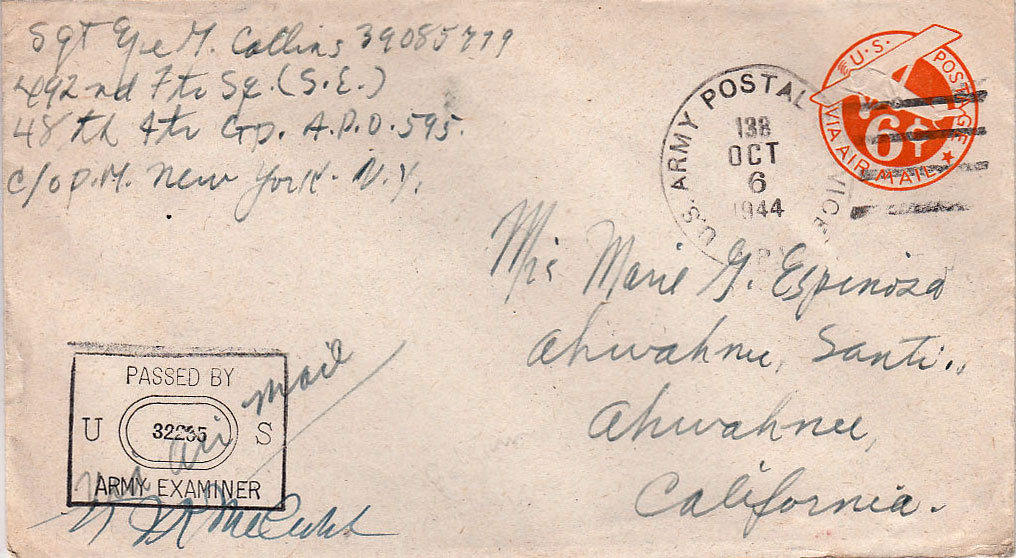 Sgt M. Collins 39085779
492nd Ftr Sq. (S.E.)
48th Ftr Gp. A.P.O. 595.
c/o P.M. New York. N.Y.
U.S. ARMY POSTAL
138
OCT
6
1944
U.S. POSTAGE
6¢
VIA AIR MAIL
Marie G. Espinoza
Ahwahnee, Sant..
Ahwahnee,
California.
Via air mail
PASSED BY
U 32295 S
ARMY EXAMINER